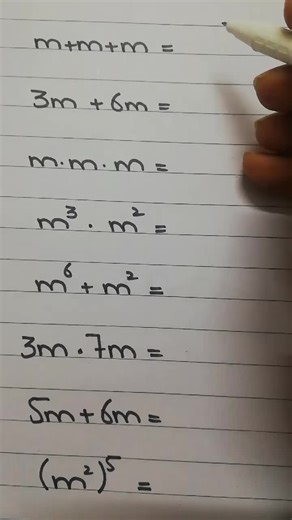 m+m+m =
3m + 6m =
m·m·m =
m³ · m² =
m⁶ + m² =
3m · 7m =
5m + 6m =
(m²)⁵ =